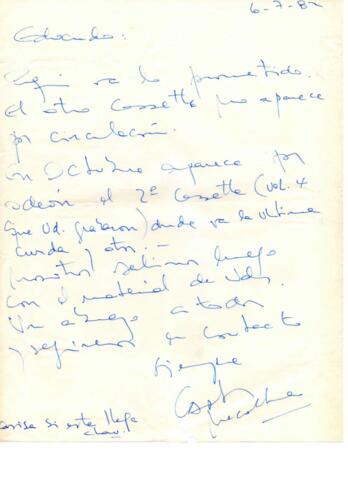 6-7-82
Eduardo:
Aquí va lo prometido.
El otro cassette no aparece
por circulación.
En Octubre aparece por
odeón el 2º cassette (vol. 4
que Ud. grabaron) donde va la última
curda y otros. -
nosotros salimos luego
con el material de Uds.
Un abrazo a todos
y seguimos en contacto
siempre
avisa si esta llega